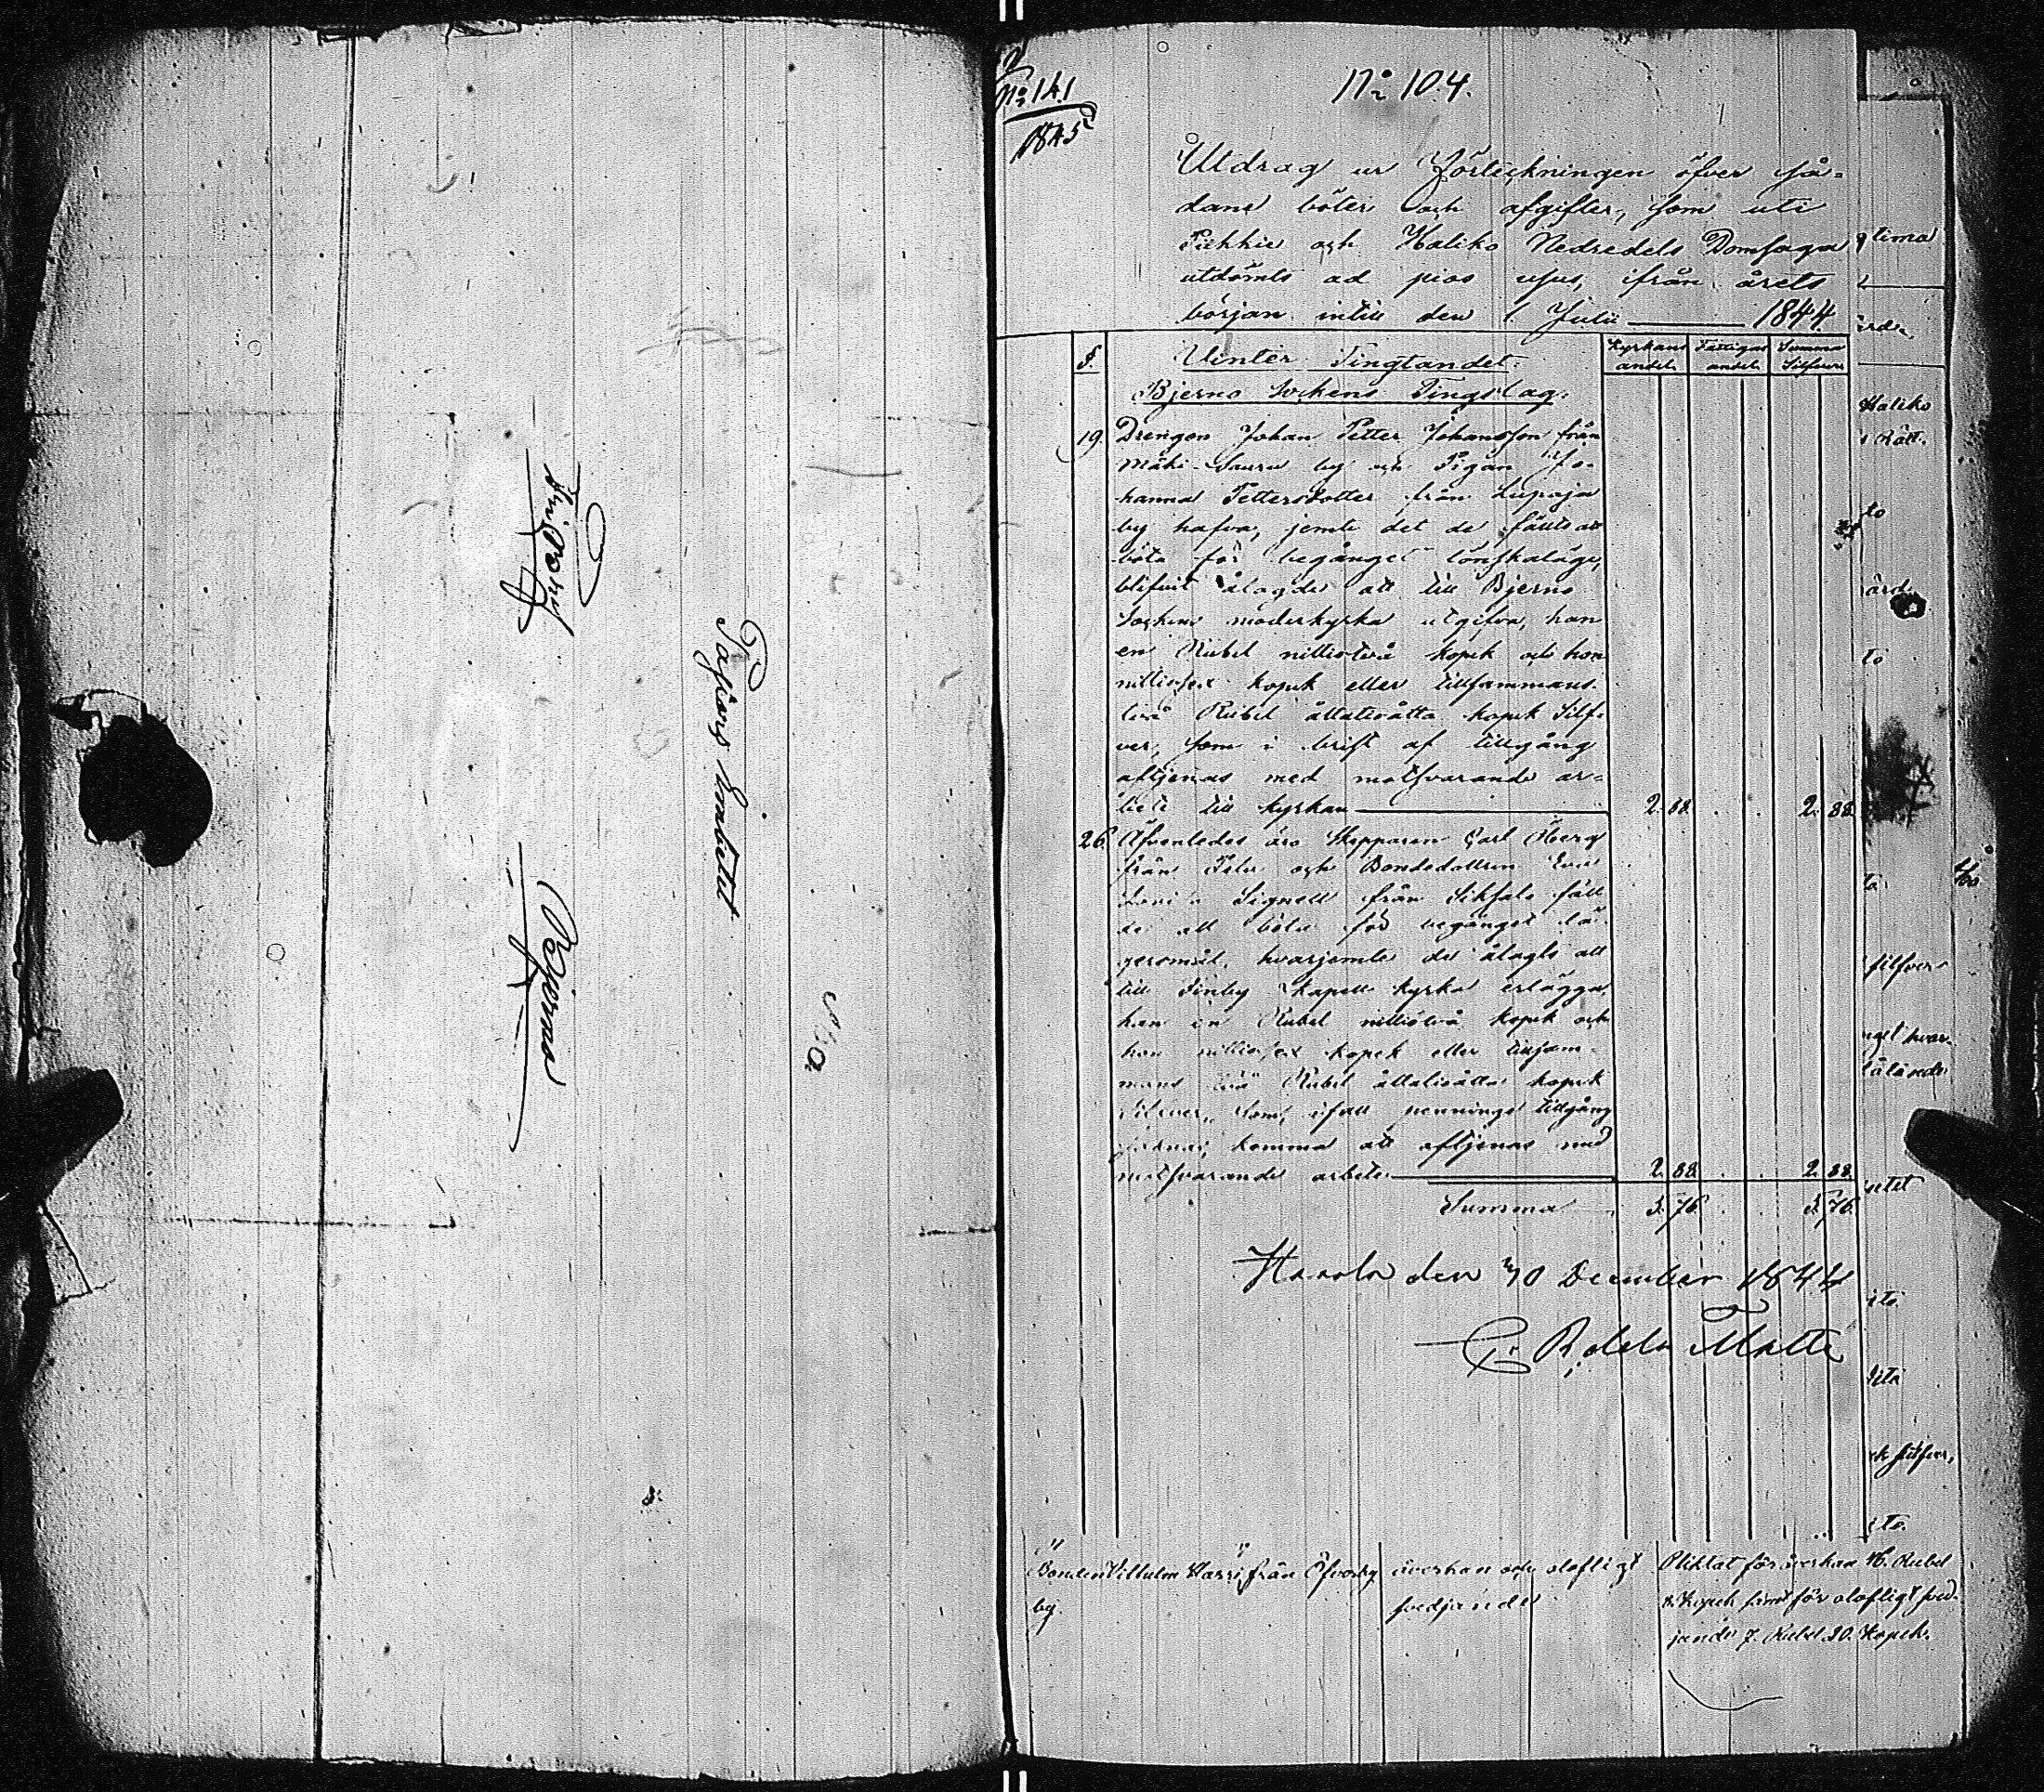 Kejserl
Pastors Embetet
Bjerno
N:o 141
1845
N:o 104.
Utdrag ur Förteckningen öfver så-
dane böter och afgifter, som uti
Piikkie och Haliko Nedredels Domsaga
utdömts ad pios usus, ifrån årets
början intill den 1 Julii 1844.
§. Vinter Tingtandet. Kyrkans andel. Fattigas andel. Summa Silfver.
Bjerno Sockens Tingslag.
19. Drengen Johan Petter Johansson från
Mäki-Sauru by och Pigan Jo-
hanna Pettersdotter från Lupaja
by hafva, jemte det de fällts att
böta för begånget lönskaläge,
blifvit ålagde att till Bjerno
Sockens moderkyrka utgifva, han
en Rubel nittiotvå kopek och hon
nittiosex kopek eller tillsammans
två Rubel åttatioåtta kopek Silf-
ver, som i brist af tillgång
aftjenas med motsvarande ar-
bete till kyrkan 2. 88. . . 2. 88.
26. Äfvenledes äro Skepparen Carl Öberg
från och Bondedottren Eva
Signell från fäll-
de att böta för begånget lä-
gersmål, hvarjemte de ålagts att
till Finby Kapell kyrka erlägga,
han en Rubel nittiotvå kopek och
hon nittiosex kopek eller tillsam-
mans två Rubel åttatioåtta kopek
Silfver, som, ifall pennings tillgång
komma att aftjenas med
motsvarande arbete 2. 88. . . 2. 88.
Summa 5. 76. . . 5. 76.
den 30 December 1844
Bonden Vilhelm Harri från Öfverby åverkan och olofligt Pliktat för åverkan 16. Rubel
by. svedjande kopek samt för olofligt sved-
jande 7. Rubel 20. Kopek.
tima
Haliko
Rätt.
to
ård.
to
silfver
nget hvar-
ålände
etet
ito
dito
ek silfver,
ito.